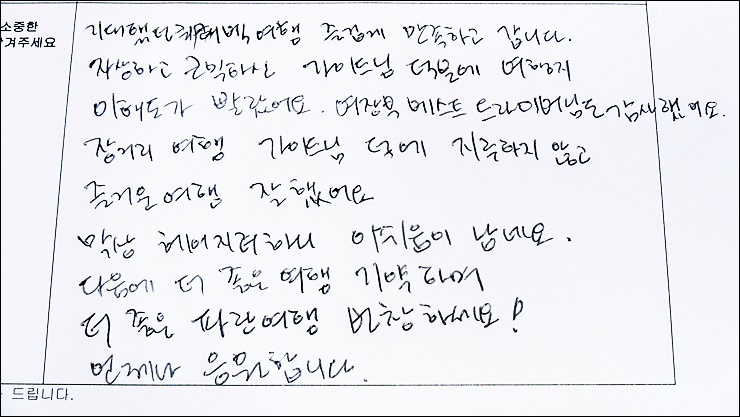 소중한
겨주세요
기대했던 퀘벡 여행 즐겁게 만족하고 갑니다.
자상하고 근익하신 가이드님 덕분에 여행지
이해도가 빨랐어요. 여장부 베스트 드라이버님도 감사했어요.
장거리 여행 가이드님 덕에 지루하지 않고
즐거운 여행 잘 했어요
막상 헤어지려하니 아쉬움이 남네요.
다음에 더 좋은 여행 기약하며
더 좋은 파란여행 번창하세요!
언제나 응원합니다.
드립니다.